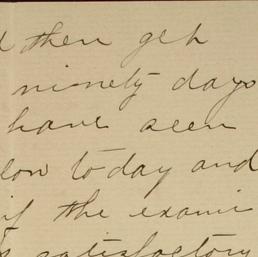 then get
ninety days
have seen
low today and
if the exami
satisfactory